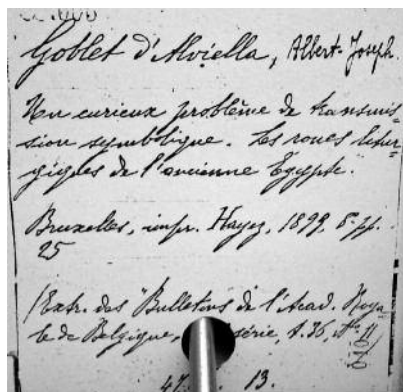 Goblet d'Alviella, Albert-Joseph.
Un curieux problème de transmis-
sion symbolique. Les roues litur-
giques de l'ancienne Egypte.
Bruxelles, impr. Hayez, 1899, 8°, pp.
25
(Extr. des "Bulletins de l'Acad. Roya
le de Belgique, série, t. 36, N° 11)
47. 13.